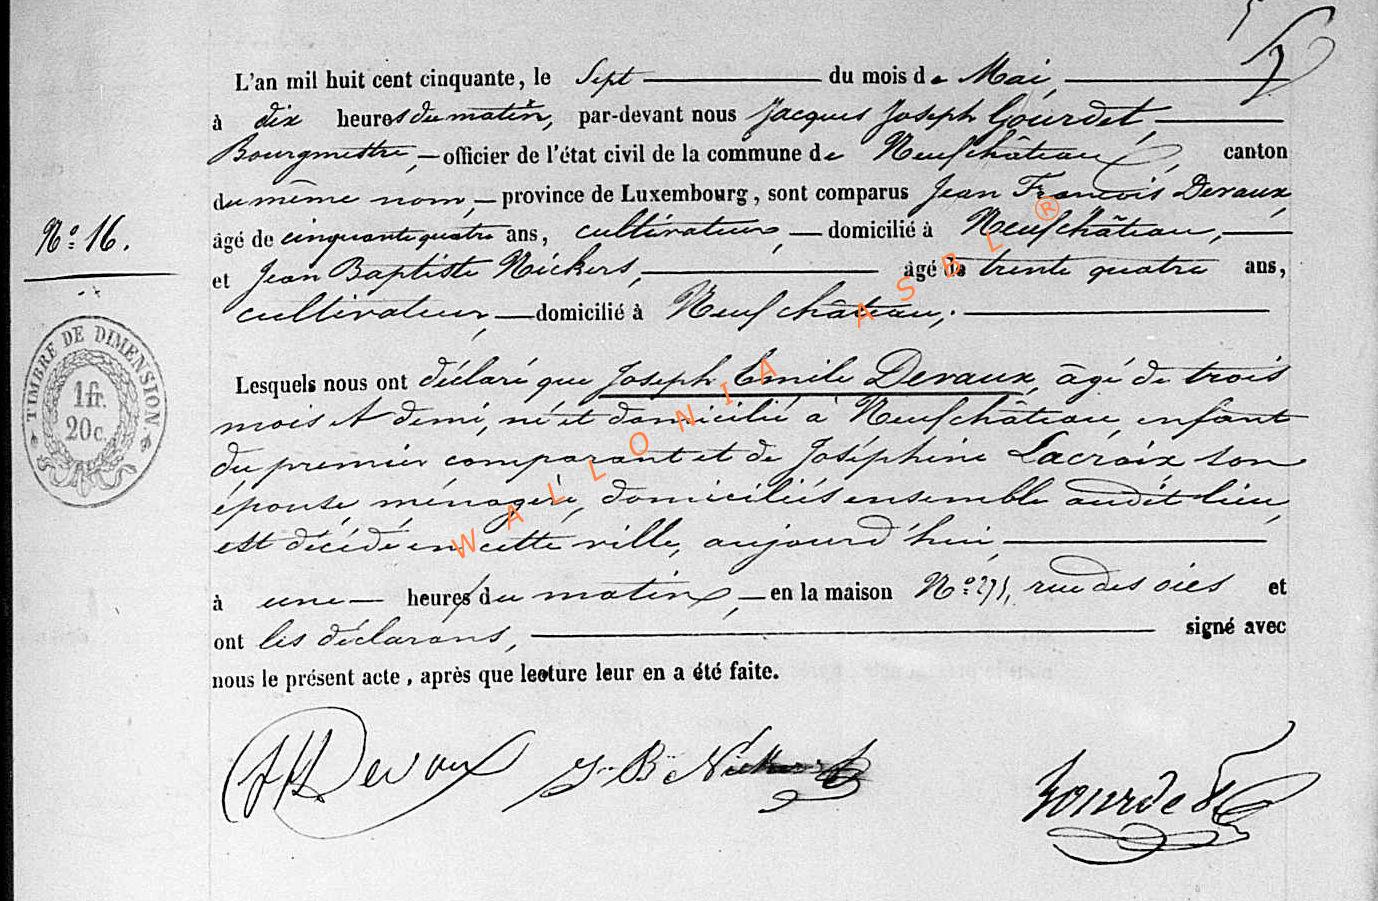 L'an mil huit cent cinquante, le Sept du mois de Mai,
à dix heures du matin, par-devant nous Jacques Joseph Gourdet,
Bourgmestre, officier de l'état civil de la commune de Neufchâteau, canton
du même nom, province de Luxembourg, sont comparus Jean François Devaux,
N.o 16.
âgé de cinquante quatre ans, cultivateur, domicilié à Neufchâteau,
et Jean Baptiste Nickers, âgé de trente quatre ans,
cultivateur, domicilié à Neufchâteau;
TIMBRE DE DIMENSION
1 fr.
20 c.
Lesquels nous ont déclaré que Joseph Emile Devaux, âgé de trois
mois et demi, né et domicilié à Neufchâteau, enfant
du premier comparant et de Joséphine Lacroix son
épouse ménagère, domiciliés ensemble audit lieu,
est décédé en cette ville, aujourd'hui,
à une heures du matin, en la maison N.o 275, rue des oies et
ont les déclarans, signé avec
nous le présent acte, après que lecture leur en a été faite.
JF Devaux J. Bte Nickers Gourdet
WALLONIA ASBL ®